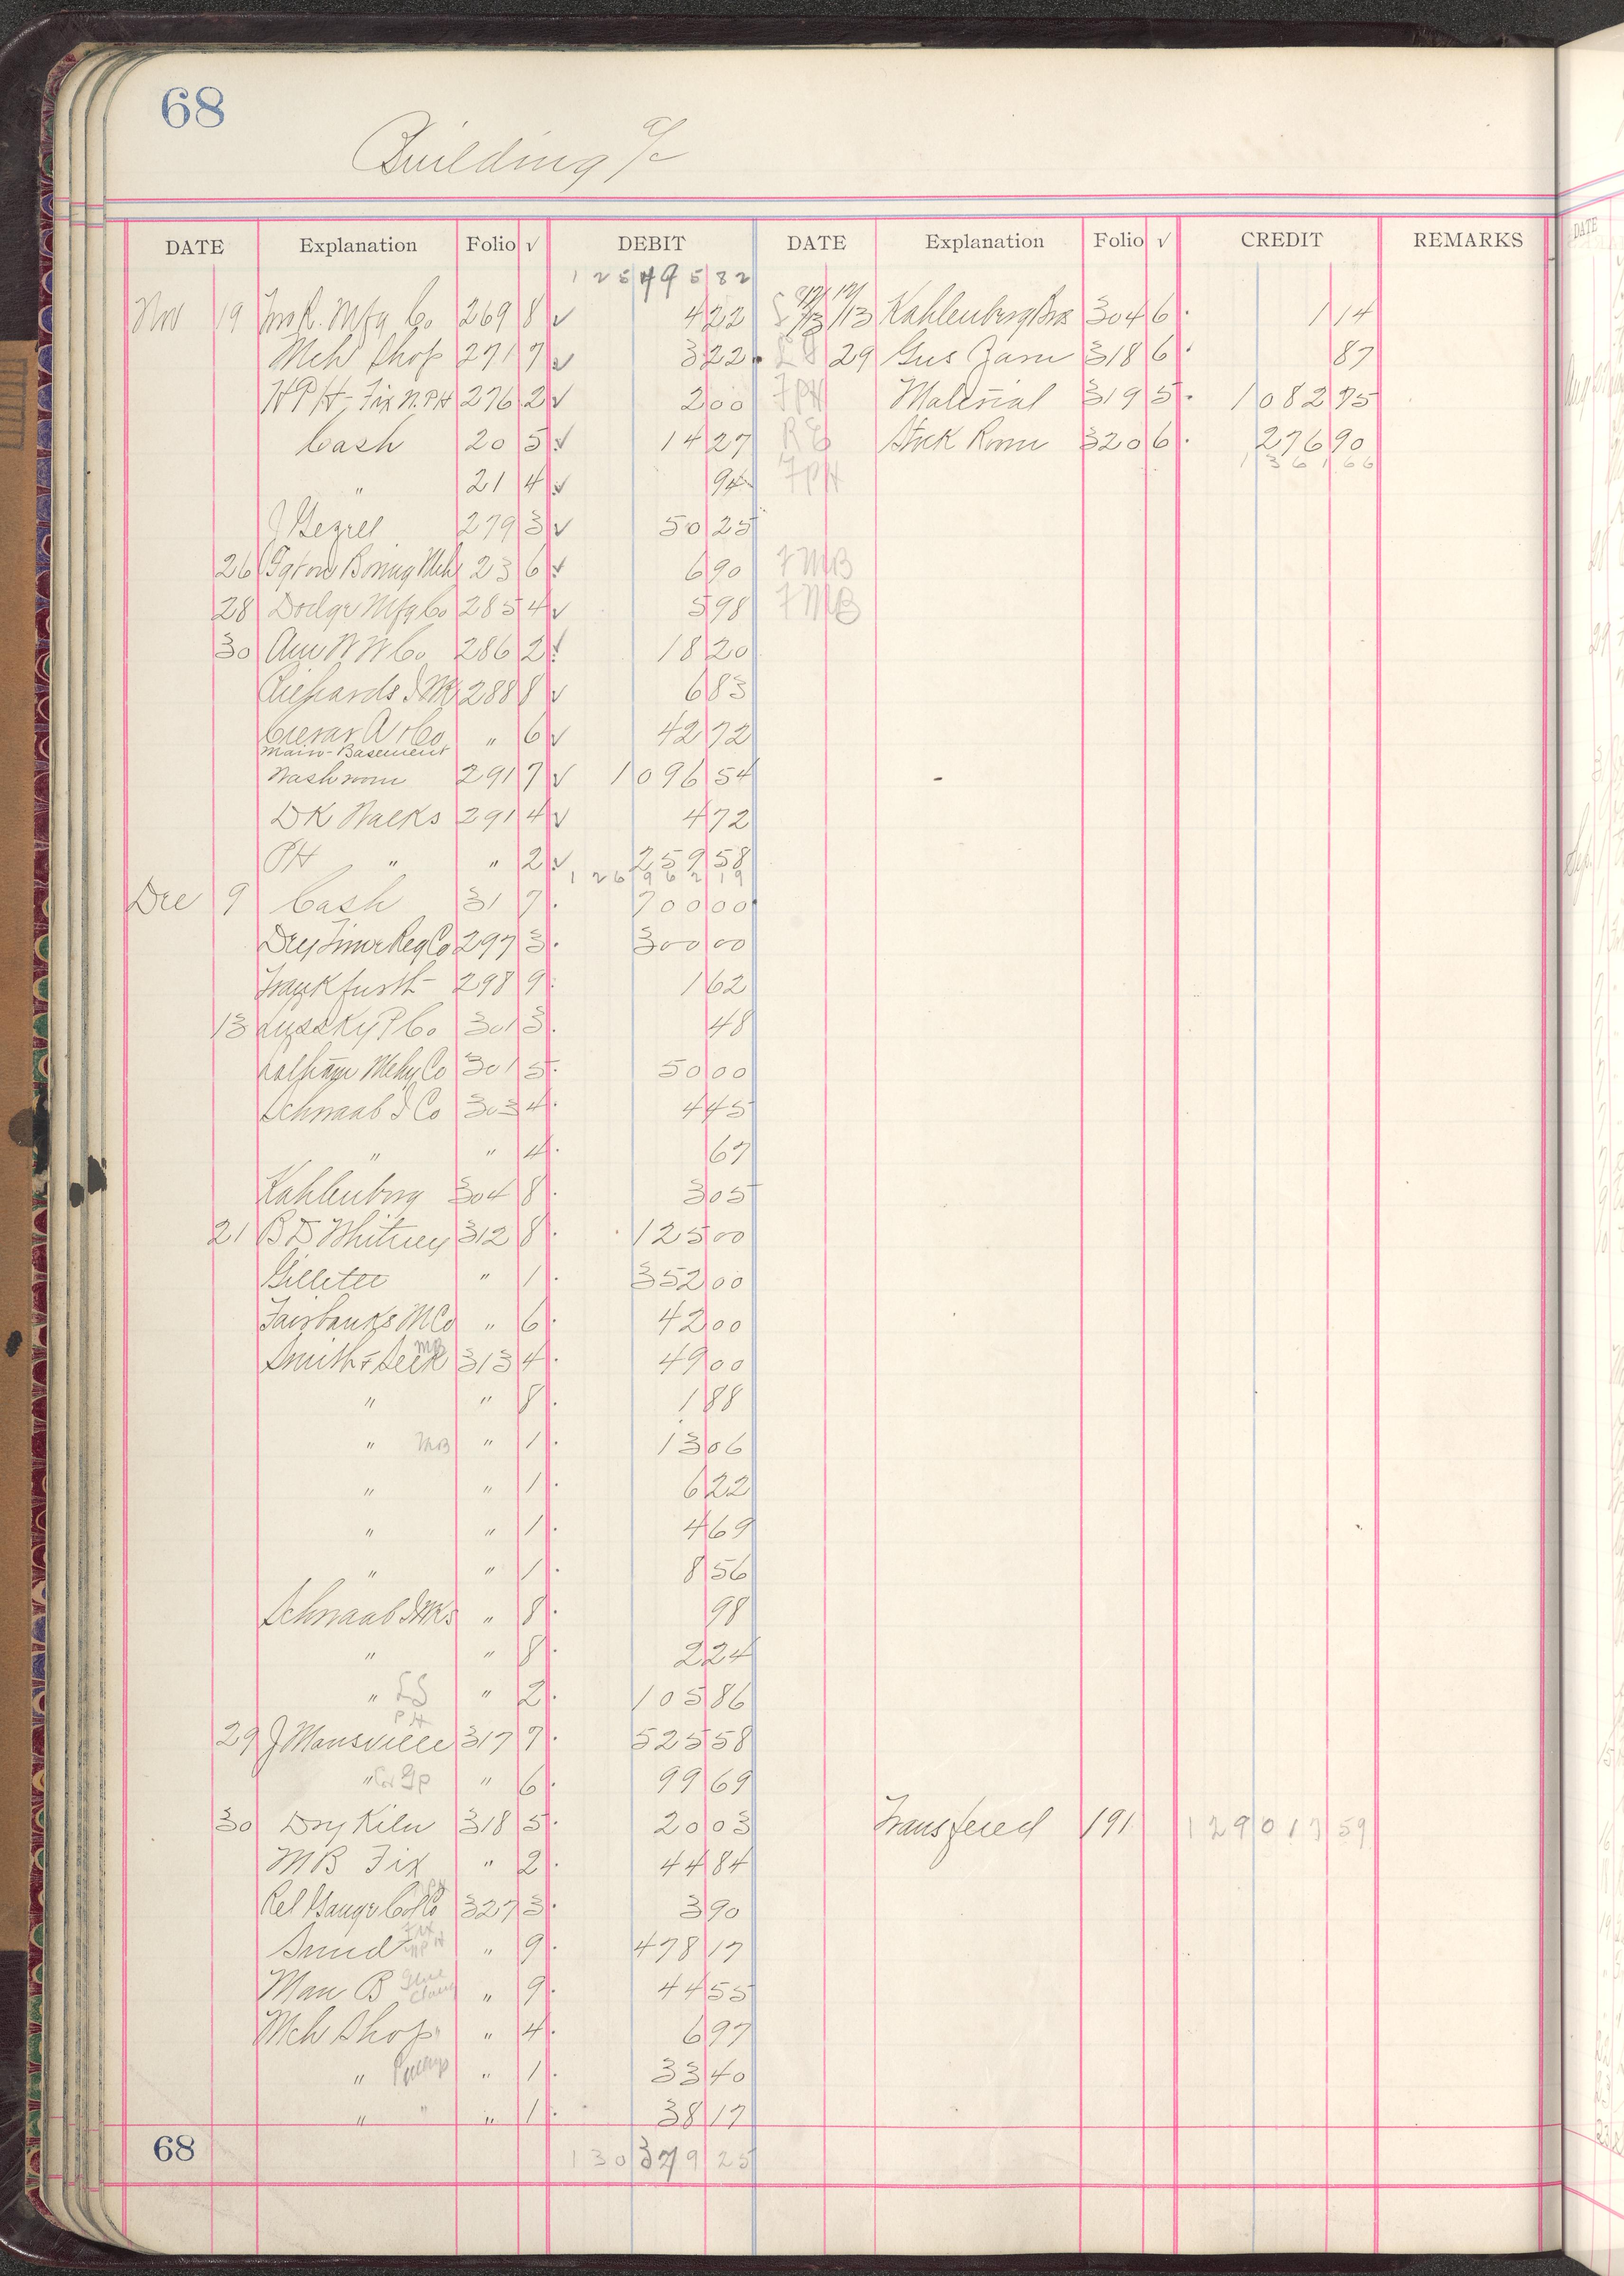 68
Building a/c
DATE Explanation Folio √ DEBIT DATE Explanation Folio √ CREDIT REMARKS
1 2 5 4 9 5 32
Nov 19 Mfg Co 269 8 √ 4 22 13 Kahlenberg Bros 304 6 1 14
Mch Shop 271 7 √ 3 22 29 Gus Zarn 318 6 87
HPH - Fix N. PH 276 2 √ 2 00 FPH Material 319 5 1 082 75
Cash 20 5 √ 14 27 RE Stock Room 320 6 276 90
1 3 6 1 66
" 21 4 √ 94 FPH
J Gezrel 279 3 √ 50 25
26 Boring Mch 23 6 √ 6 90 FMB
28 Dodge Mfg Co 285 4 √ 5 98 FMB
30 Am W W Co 286 2 √ 18 20
Richards I W 288 8 √ 6 83
" 6 √ 42 72
Main - Basement
Washroom 291 7 √ 1 096 54
DK Walks 291 4 √ 4 72
PH " " 2 √ 259 58
1 26 9 6 2 19
Dec 9 Cash 31 7 700 00
Dey Time Reg Co 297 3 300 00
Frankfurth 298 9 1 62
13 P Co 301 3 48
Mchy Co 301 5 50 00
Schwaab S Co 303 4 4 45
" " 4 67
Kahlenberg 304 8 3 05
21 B D Whitney 312 8 125 00
Gillette " 1 352 00
Fairbanks M Co " 6 42 00
MB
313 4 49 00
" " 8 1 88
" MB " 1 13 06
" " 1 6 22
" " 1 4 69
" " 1 8 56
Schwaab S Wks " 8 98
" " 8 2 24
" " 2 105 86
PH
29 J Mansville 317 7 525 58
" " 6 99 69
30 Dry Kiln 318 5 20 03 Transfered 191 1 29 0 1 7 59
MB Fix " 2 44 84
Rel Gauge Col Co 327 3 3 90
" 9 478 17
Man B Glue " 9 44 55
Mch Shop " 4 6 97
" Pump " 1 33 40
" " " 1 38 17
68 1 30 3 7 9 25